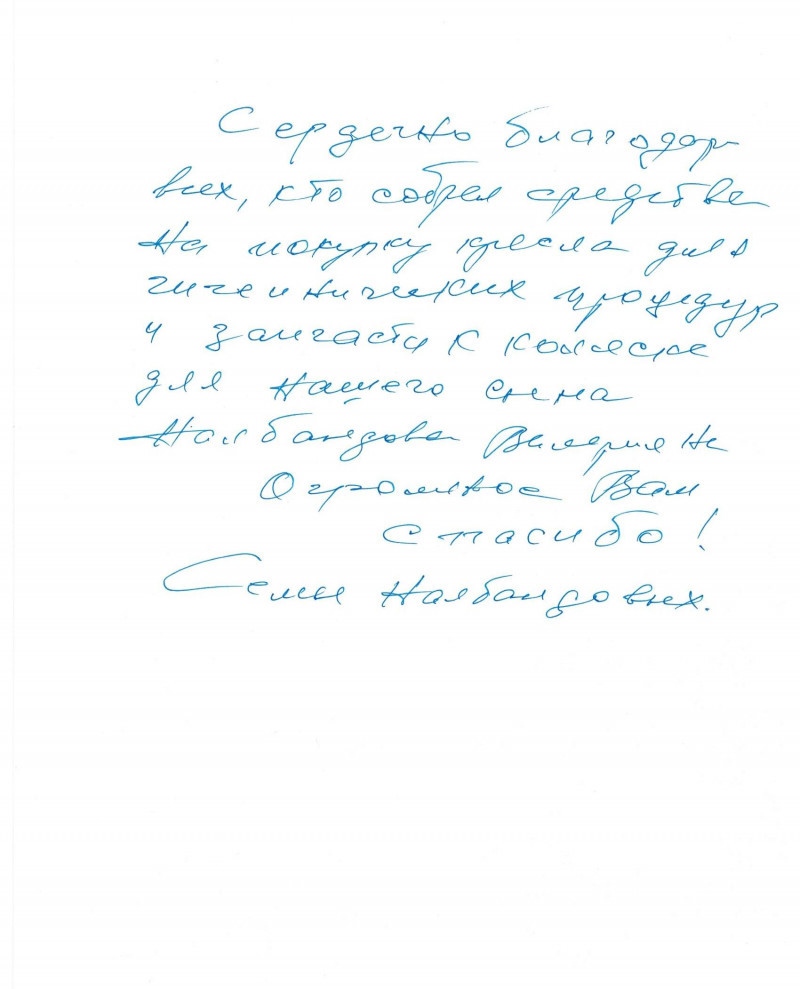 Сердечно благодар
всех, кто собрал средства
на покупку кресла для
гигиенических процедур
и запчасти к коляске
для нашего сына
Налбандова Валериана
Огромное Вам
спасибо!
Семья Налбандовых.